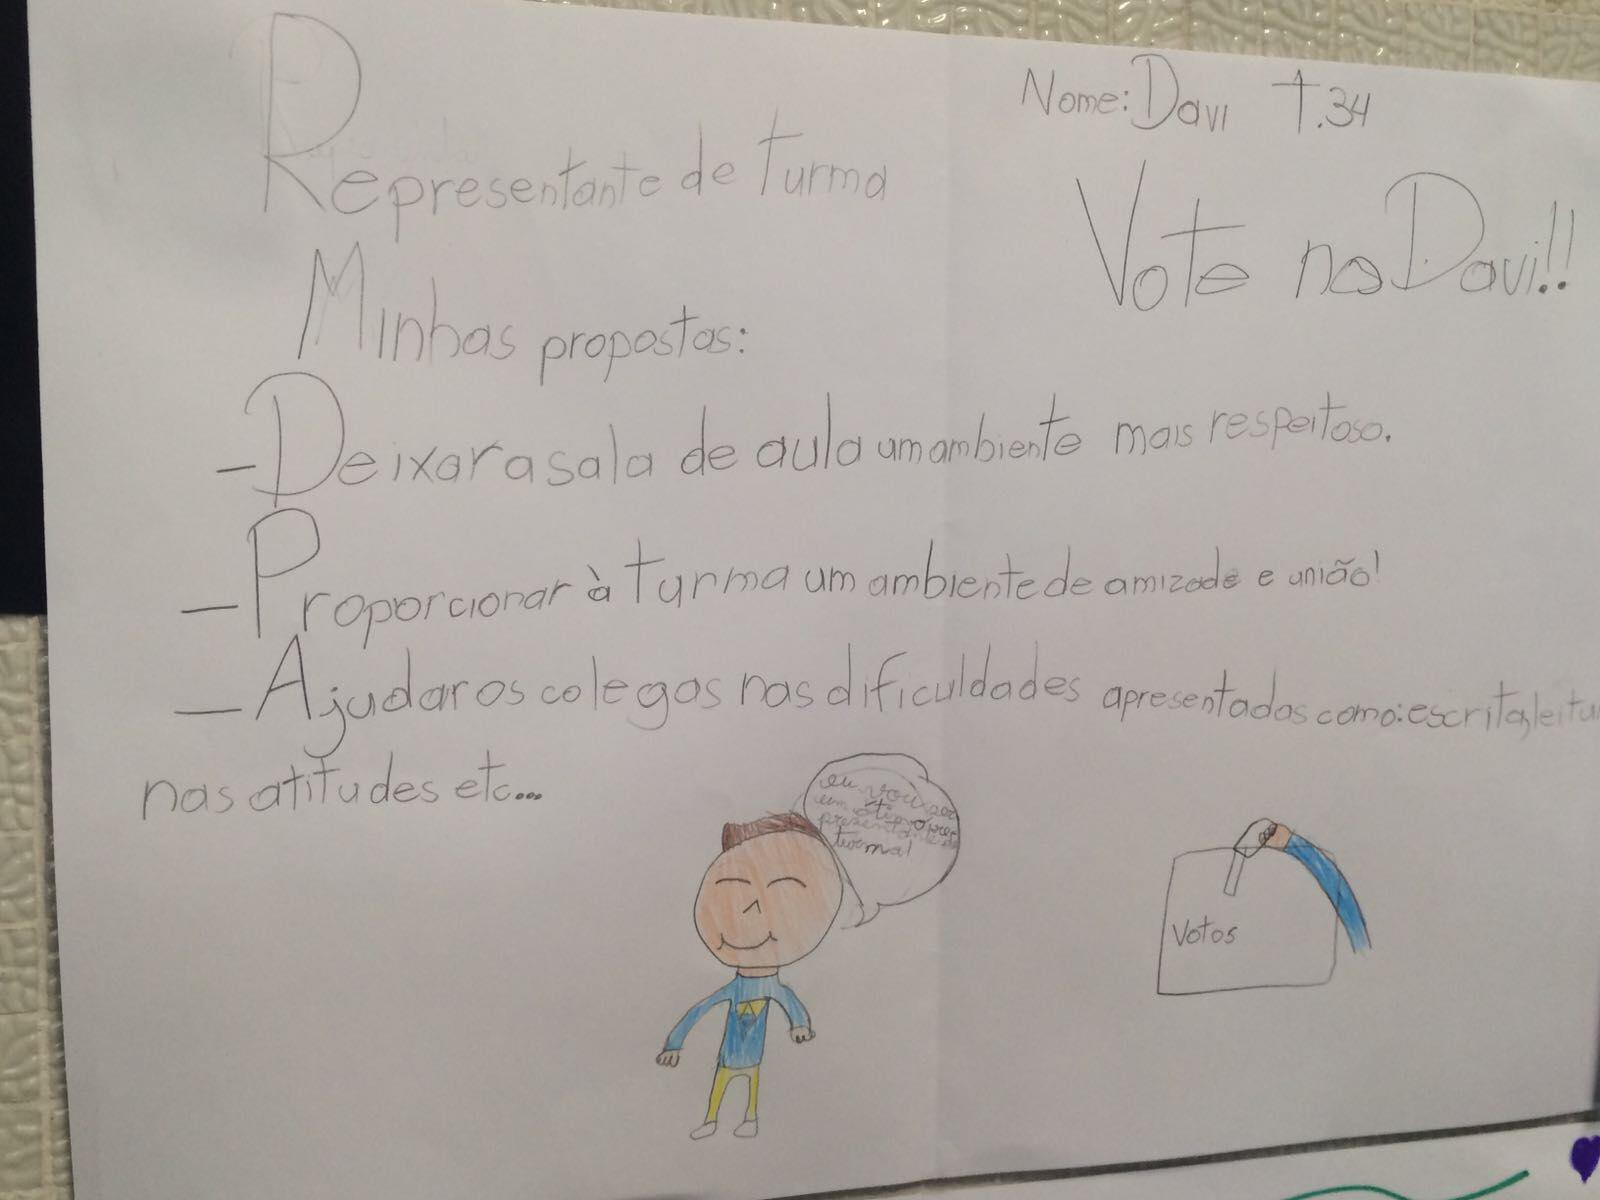 Nome: Davi T.34
Representante de turma
Vote no Davi!!
Minhas propostas:
- Deixar a sala de aula um ambiente mais respeitoso.
- Proporcionar à turma um ambiente de amizade e união!
- Ajudar os colegas nas dificuldades apresentadas como: escrita, leitu
nas atitudes etc...
eu vou ser
um ótimo re
presentante de
turma!
Votos